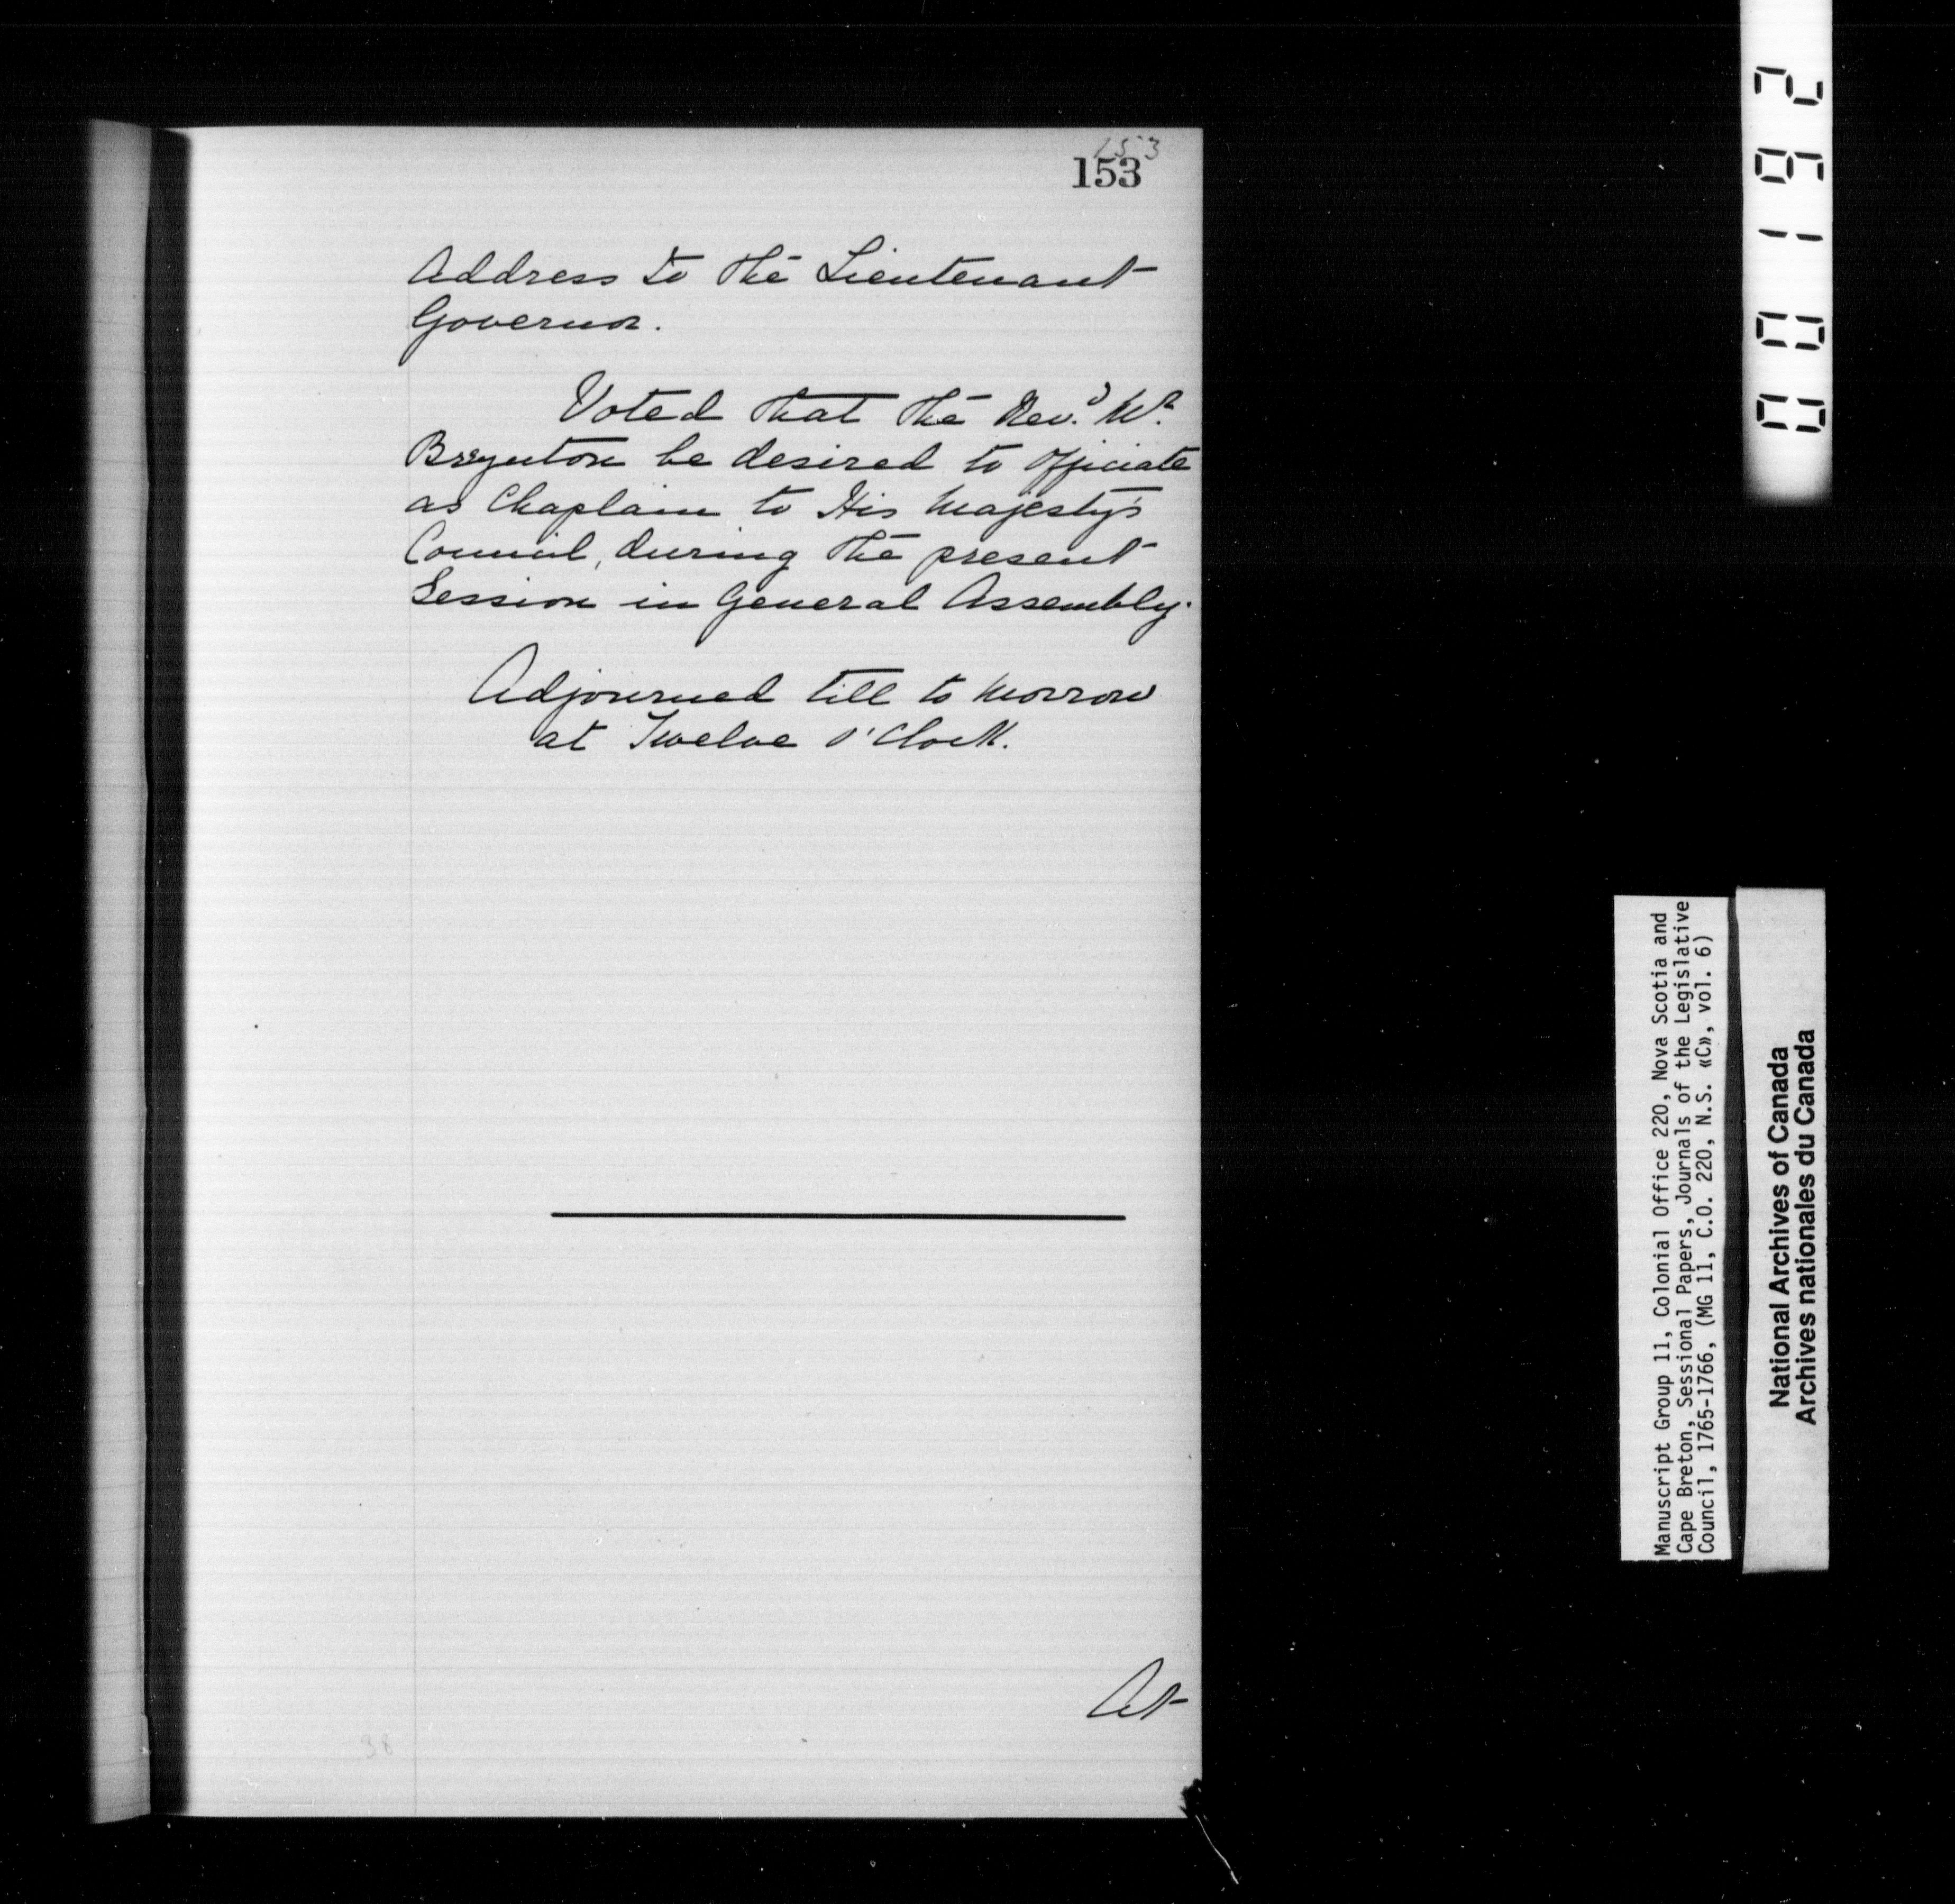 153
153
Address to the Lieutenant
Governor.
Voted that the Rev.d Mr.
Breynton be desired to officiate
as Chaplain to His Majesty's
Council, during the present
Session in General Assembly.
Adjourned till to Morrow
at Twelve O'Clock.
At
38
000192
Manuscript Group 11, Colonial Office 220, Nova Scotia and
Cape Breton, Sessional Papers, Journals of the Legislative
Council, 1765-1766, (MG 11, C.O. 220, N.S. «C», vol. 6)
National Archives of Canada
Archives nationales du Canada